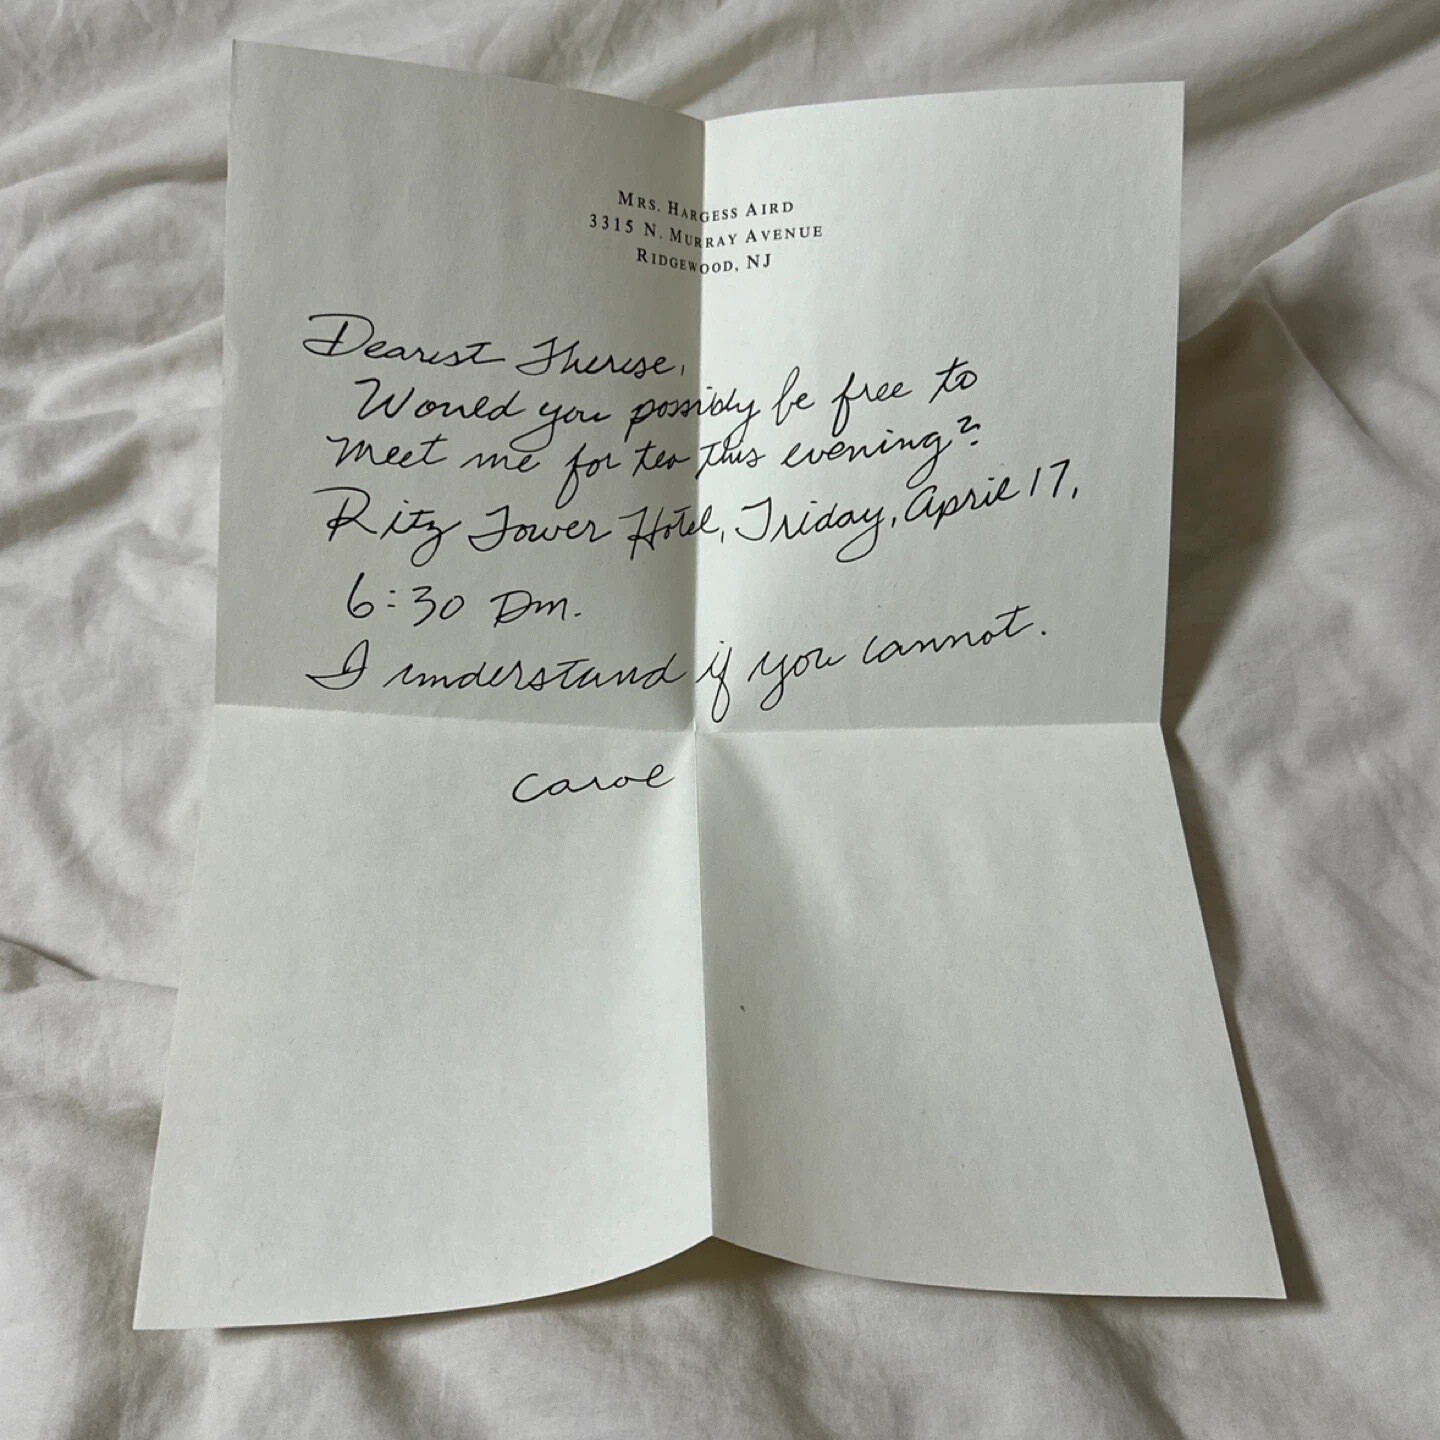 MRS. HARGESS AIRD
3315 N. MURRAY AVENUE
RIDGEWOOD, NJ
Dearest Therese,
Would you possibly be free to
meet me for tea this evening?
Ritz Tower Hotel, Friday, April 17,
6:30 pm.
I understand if you cannot.
Carol